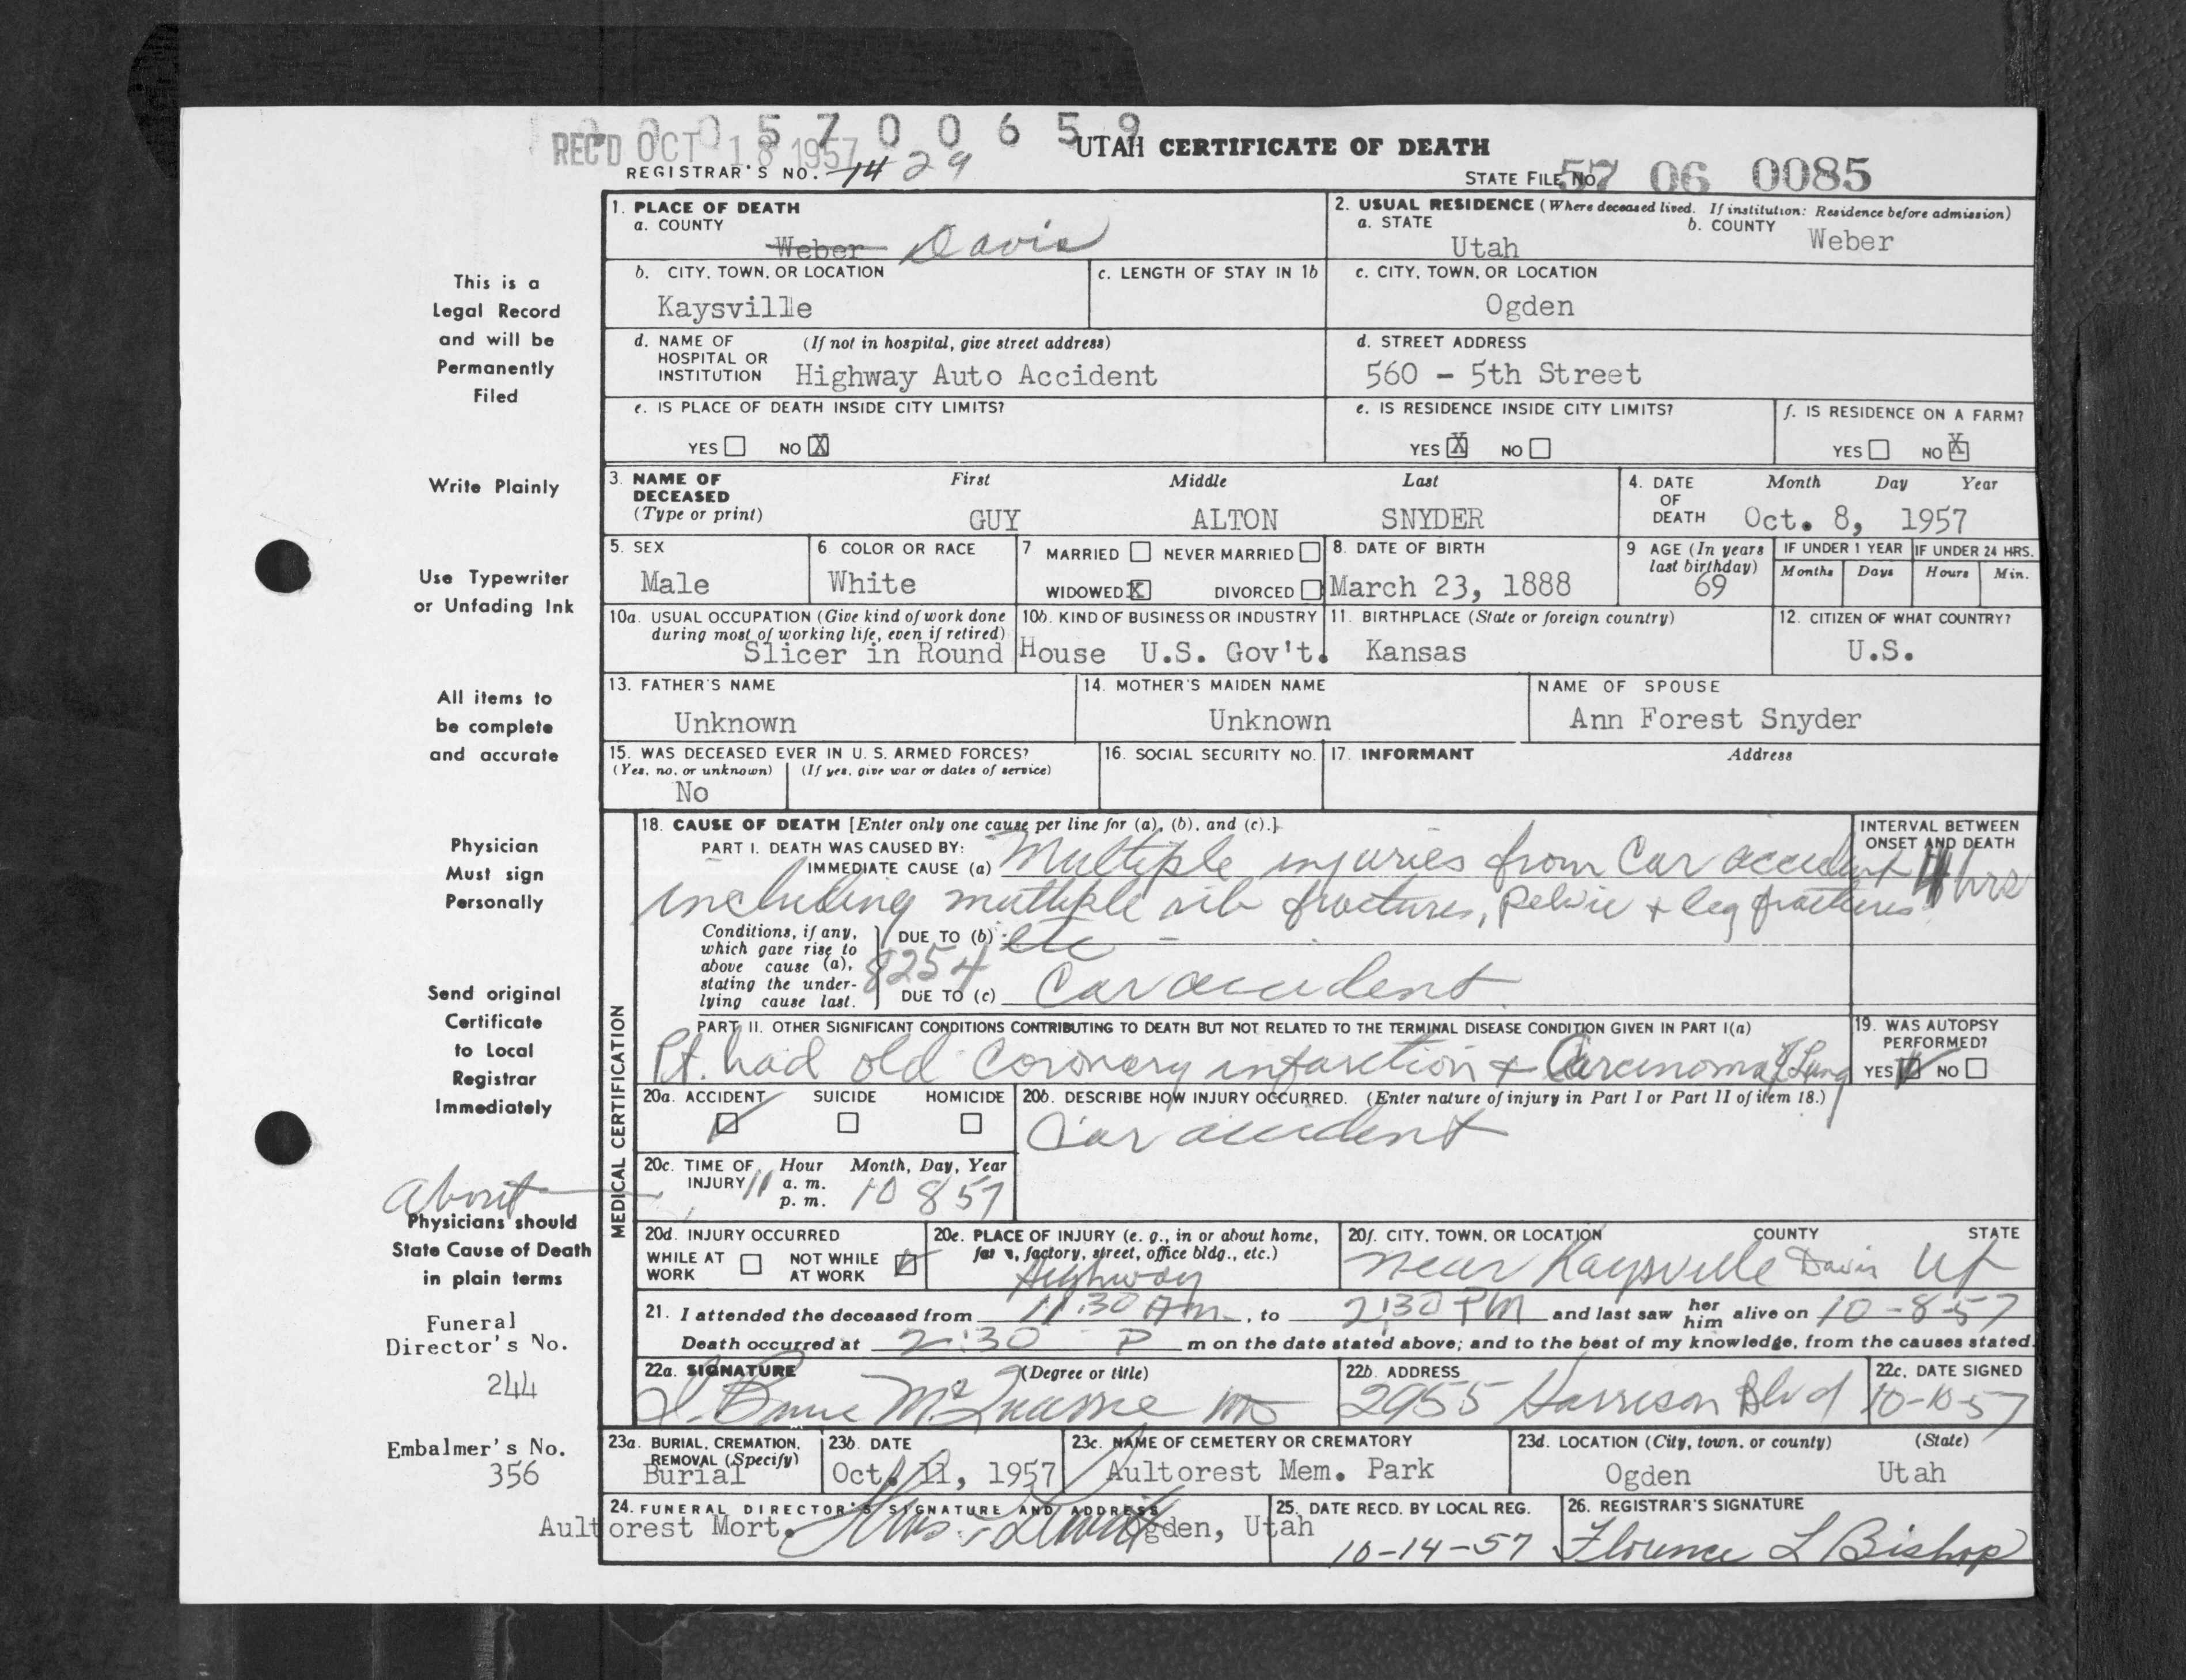 00 057 00 659
REC'D OCT 18 1957
UTAH CERTIFICATE OF DEATH
REGISTRAR'S NO. 14 29
STATE FILE NO. 57 06 0085
1. PLACE OF DEATH
a. COUNTY
Weber Davis
2. USUAL RESIDENCE (Where deceased lived. If institution: Residence before admission)
a. STATE Utah b. COUNTY Weber
b. CITY, TOWN, OR LOCATION
Kaysville
c. LENGTH OF STAY IN 1b
c. CITY, TOWN, OR LOCATION
Ogden
d. NAME OF HOSPITAL OR INSTITUTION (If not in hospital, give street address)
Highway Auto Accident
d. STREET ADDRESS
560 - 5th Street
e. IS PLACE OF DEATH INSIDE CITY LIMITS?
YES NO X
e. IS RESIDENCE INSIDE CITY LIMITS?
YES X NO
f. IS RESIDENCE ON A FARM?
YES NO X
3. NAME OF DECEASED (Type or print)
First Middle Last
GUY ALTON SNYDER
4. DATE OF DEATH Month Day Year
Oct. 8, 1957
5. SEX
Male
6. COLOR OR RACE
White
7. MARRIED NEVER MARRIED
WIDOWED X DIVORCED
8. DATE OF BIRTH
March 23, 1888
9 AGE (In years last birthday)
69
IF UNDER 1 YEAR
Months Days
IF UNDER 24 HRS.
Hours Min.
10a. USUAL OCCUPATION (Give kind of work done during most of working life, even if retired)
10b. KIND OF BUSINESS OR INDUSTRY
Slicer in Round House U.S. Gov't.
11. BIRTHPLACE (State or foreign country)
Kansas
12. CITIZEN OF WHAT COUNTRY?
U.S.
13. FATHER'S NAME
Unknown
14. MOTHER'S MAIDEN NAME
Unknown
NAME OF SPOUSE
Ann Forest Snyder
15. WAS DECEASED EVER IN U. S. ARMED FORCES?
(Yes, no, or unknown) (If yes, give war or dates of service)
No
16. SOCIAL SECURITY NO.
17. INFORMANT Address
MEDICAL CERTIFICATION
18. CAUSE OF DEATH [Enter only one cause per line for (a), (b), and (c).]
INTERVAL BETWEEN ONSET AND DEATH
PART I. DEATH WAS CAUSED BY:
IMMEDIATE CAUSE (a) Multiple injuries from Car accident 4 hrs
including multiple rib fractures, Pelvic + leg fractures
Conditions, if any, which gave rise to above cause (a), stating the underlying cause last.
DUE TO (b) etc
8254
DUE TO (c) Car accident
PART II. OTHER SIGNIFICANT CONDITIONS CONTRIBUTING TO DEATH BUT NOT RELATED TO THE TERMINAL DISEASE CONDITION GIVEN IN PART I(a)
Pt. had old Coronary infarction + Carcinoma of Lung
19. WAS AUTOPSY PERFORMED?
YES NO
20a. ACCIDENT SUICIDE HOMICIDE
20b. DESCRIBE HOW INJURY OCCURRED. (Enter nature of injury in Part I or Part II of item 18.)
Car accident
20c. TIME OF INJURY Hour Month, Day, Year
11 a. m. p. m. 10 8 57
20d. INJURY OCCURRED
WHILE AT WORK NOT WHILE AT WORK
20e. PLACE OF INJURY (e. g., in or about home, farm, factory, street, office bldg., etc.)
Highway
20f. CITY, TOWN, OR LOCATION COUNTY STATE
near Kaysville Davis Ut
21. I attended the deceased from 11:30 Am, to 2:30 PM and last saw her him alive on 10-8-57
Death occurred at 2:30 P m on the date stated above; and to the best of my knowledge, from the causes stated.
22a. SIGNATURE (Degree or title)
MD
22b. ADDRESS
2955 Harrison Blvd
22c. DATE SIGNED
10-10-57
23a. BURIAL, CREMATION, REMOVAL (Specify)
Burial
23b. DATE
Oct. 11, 1957
23c. NAME OF CEMETERY OR CREMATORY
Aultorest Mem. Park
23d. LOCATION (City, town, or county) (State)
Ogden Utah
24. FUNERAL DIRECTOR'S SIGNATURE AND ADDRESS
Aultorest Mort. Ogden, Utah
25. DATE RECD. BY LOCAL REG.
10-14-57
26. REGISTRAR'S SIGNATURE
Florence L Bishop
This is a
Legal Record
and will be
Permanently
Filed
Write Plainly
Use Typewriter
or Unfading Ink
All items to
be complete
and accurate
Physician
Must sign
Personally
Send original
Certificate
to Local
Registrar
Immediately
about
Physicians should
State Cause of Death
in plain terms
Funeral
Director's No.
244
Embalmer's No.
356